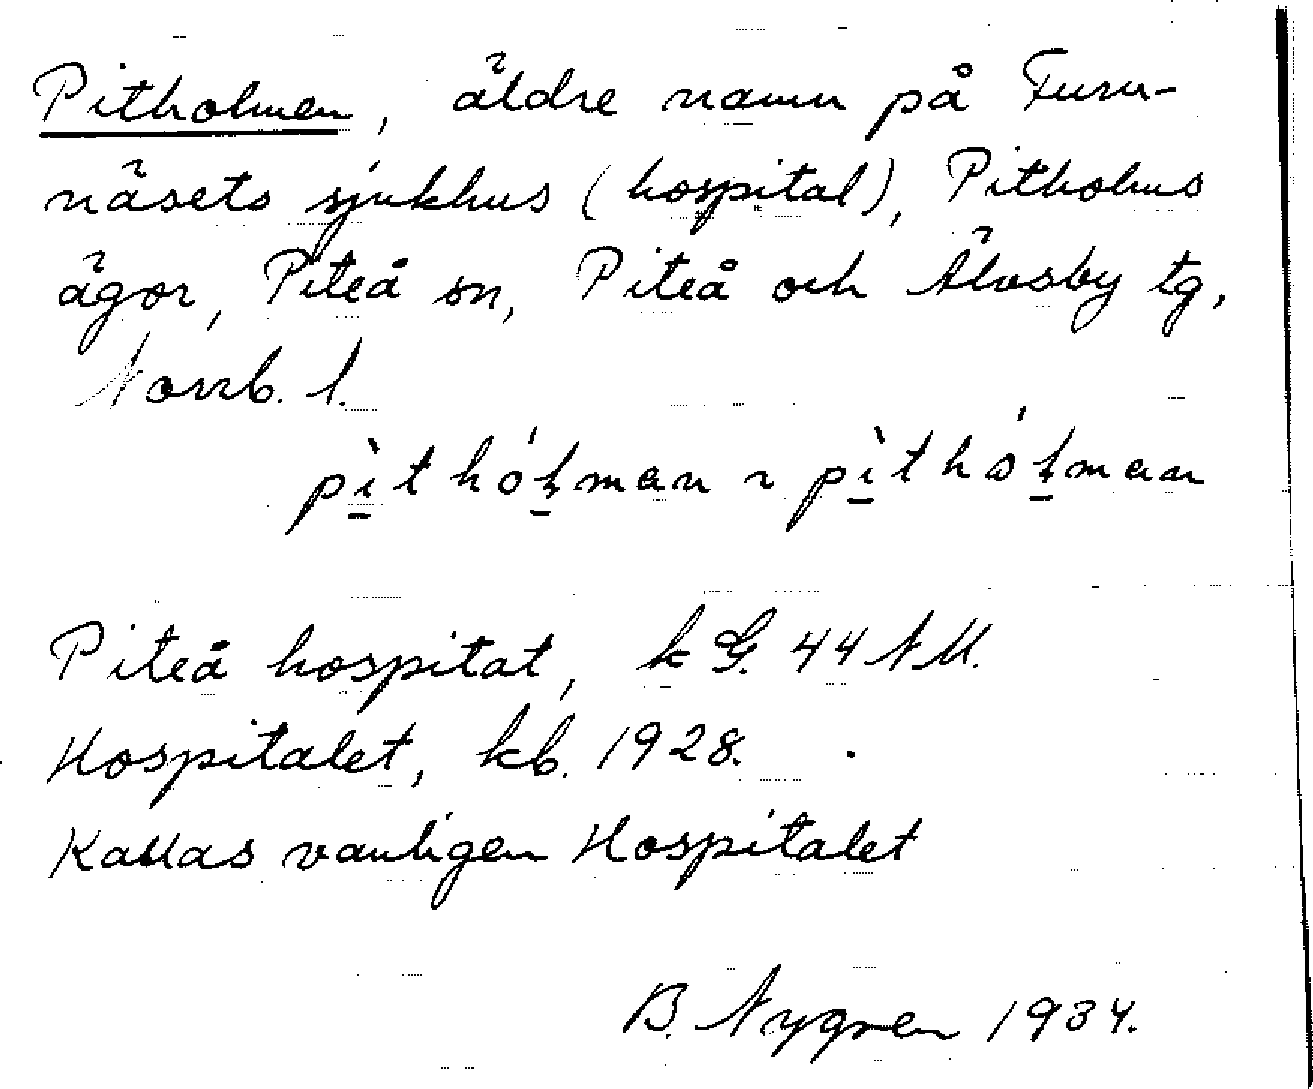 Pitholmen, äldre namn på Furu-
näsets sjukhus (hospital), Pitholms
ägor, Piteå sn, Piteå och Älvsby tg,
Norrb. l.
pìthóḷman ~ pìthóḷman
Piteå hospital, kG. 44 NM.
Hospitalet, kb. 1928.
Kallas vanligen Hospitalet
B. Nygren 1934.